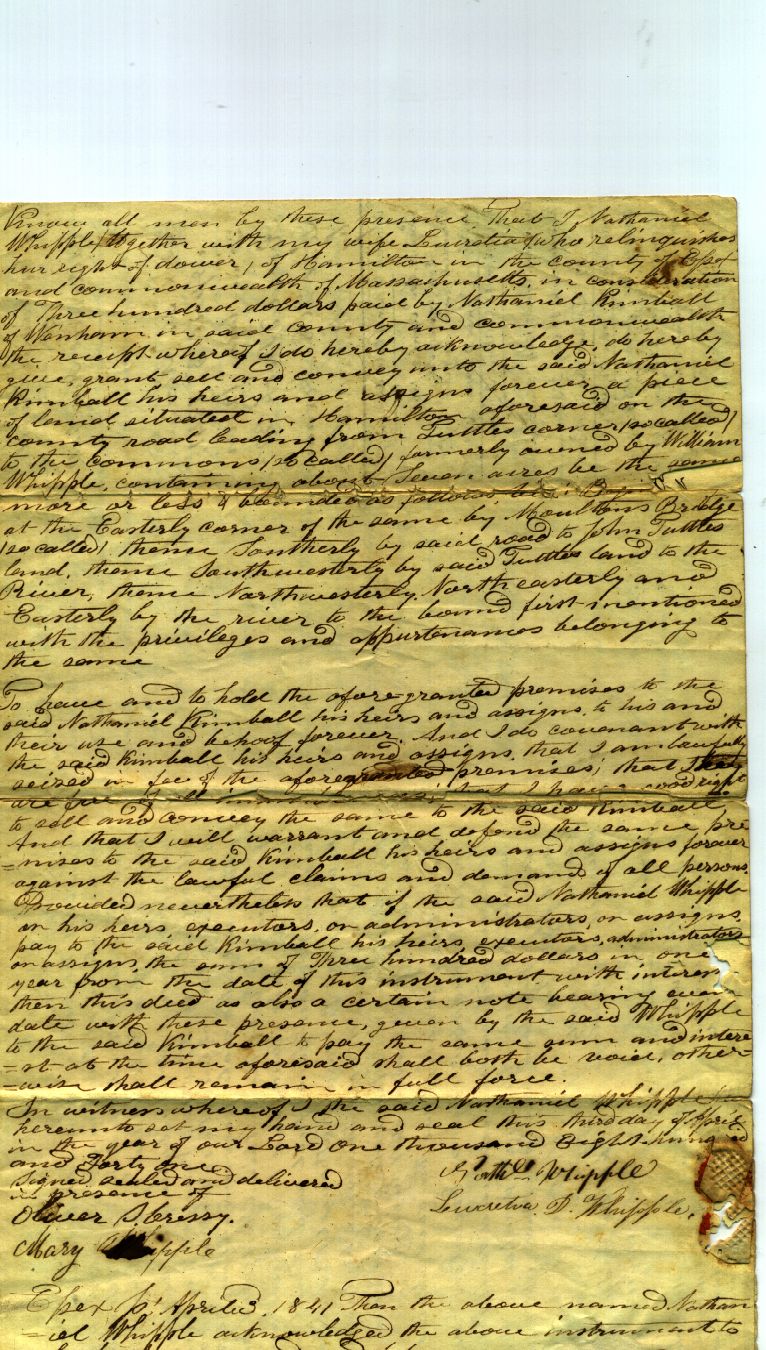 Know all men by these presence That I Nathaniel
Whipple, together with my wife Lucretia (who relinquishes
hur right of dower, of Hamilton in the county of Essex
and commonwealth of Massachusetts, in consideration
of Three hundred dollars paid by Nathaniel Kimball
of Wenham in said county and commonwealth
the receipt whereof I do hereby acknowledge, do hereby
give, grant sell and convey unto the said Nathaniel
Kimball his heirs and assigns forever a piece
of land situated in Hamilton aforesaid on the
county road leading from Tuttles corner (so called)
to the commons (so called) formerly owned by William
Whipple, containing about Seven acres be the same
more or less & bounded as follows
at the Easterly corner of the same by Moultons Bridge
(so called) thence Southerly by said road to John Tuttles
land, thence Southwesterly by said Tuttles land to the
River, thence Northwesterly, Northeasterly and
Easterly by the river to the bound first mentioned
with the privileges and appurtenances belonging to
the same
To have and to hold the afore granted premises to the
said Nathaniel Kimball his heirs and assigns, to his and
their use and behoof forever. And I do covenant with
the said Kimball his heirs and assigns, that I am lawfully
seized in fee of the aforegranted premises; that they
are free of all incumbrances; that I have good right
to sell and convey the same to the said Kimball,
And that I will warrant and defend the same pre
=mises to the said Kimball his heirs and assigns forever
against the lawful claims and demands of all persons.
Provided nevertheless that if the said Nathaniel Whipple
or his heirs, executors, or administrators, or assigns,
pay to the said Kimball his heirs, executors, administrators
or assigns, the sum of Three hundred dollars in one
year from the date of this instrument with interes
then this deed as also a certain note bearing even
date with these presence, given by the said Whipple
to the said Kimball to pay the same sum and intere
=st at the time aforesaid shall both be void, other=
=wise shall remain in full force.
In witness whereof I the said Nathaniel Whipple
hereunto set my hand and seal this third day of April
in the year of our Lord One thousand Eight hundred
and Forty one
Signed sealed and delivered
in presence of
Oliver S. Cressy.
Mary Whipple
Nathl Whipple
Lucretia D. Whipple.
Essex ss. April 3, 1841 Then the above named Nathan
=iel Whipple acknowledged the above instrument to